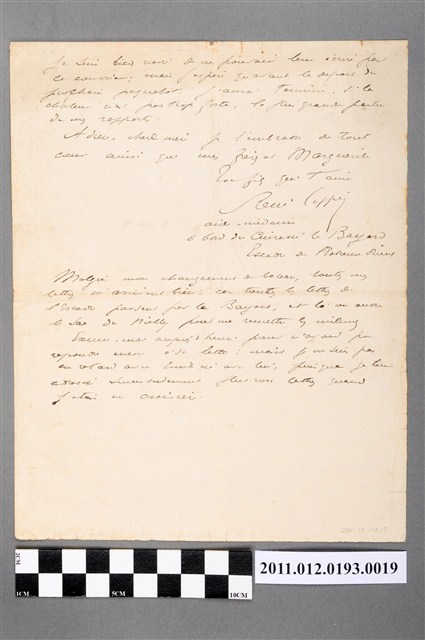 Je suis bien navré de ne pouvoir leur écrire par
ce courrier; mais j'espère qu'avant le départ du
prochain paquebot j'aurai terminé, si la
chaleur n'est pas trop forte, la plus grande partie
de mes rapports.
Adieu, chère mère je t'embrasse de tout
cœur ainsi que mes frères et Marguerite
Ton fils qui t'aime
René Coppin
aide-médecin
à bord du Cuirassé le Bayard
Escadre de
Malgré mon changement de bateau, toutes mes
lettres arrivent bien: car toutes les lettres de
l'Escadre passent par le Bayard, et là on ouvre
le sac du pour me remettre les miennes
Excuse-moi auprès d'Henri pour n'ayant pas
répondu à sa lettre: mais je ne suis pas
en retard avec lui, puisque je leur
adressé simultanément plusieurs lettres quand
j'étais en croisière.
2011.012.0193.0019
2CM
1CM
5CM
10CM